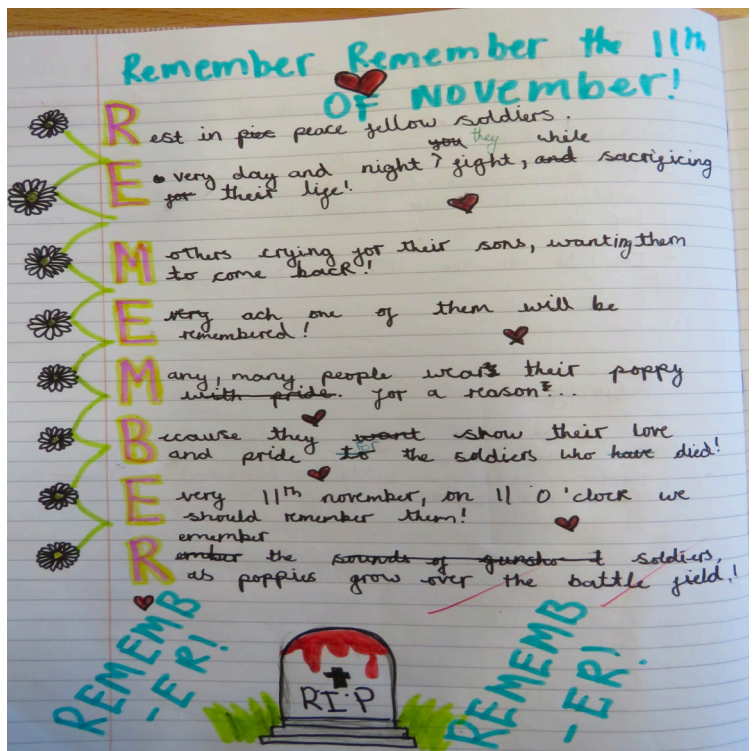 Remember Remember the 11th
OF NOVEMBER!
Rest in pice peace fellow soldiers.
you they while
Every day and night fight, and sacrificing
for their life!
Mothers crying for their sons, wanting them
to come back!
Every ach one of them will be
remembered!
Many, many people wear their poppy
with pride. for a reason...
Because they want show their love
and pride to the soldiers who have died!
Every 11th november, on 11 O'clock we
should remember them!
emember
Rember the sounds of gunsho t soldiers,
as poppies grow over the battle field!
REMEMB
-ER!
REMEMB
-ER!
RIP